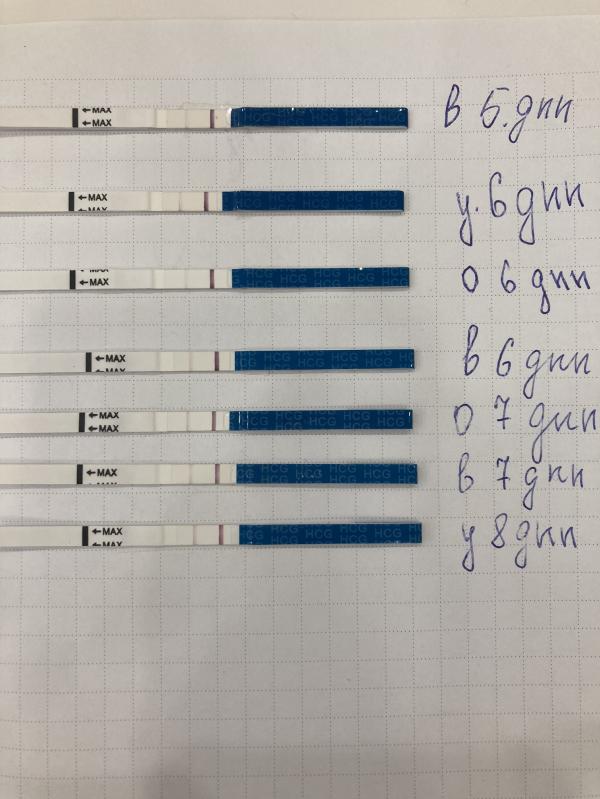 ←MAX
←MAX
HCG HCG HCG HCG
в 5.дпп
←MAX
←MAX
HCG HCG HCG
у.6 дпп
←MAX
←MAX
HCG HCG HCG
о 6 дпп
←MAX
←MAX
HCG HCG HCG
в 6 дпп
←MAX
←MAX
HCG HCG HCG
о 7 дпп
←MAX
←MAX
HCG HCG HCG
в 7 дпп
←MAX
←MAX
HCG HCG HCG
у 8 дпп